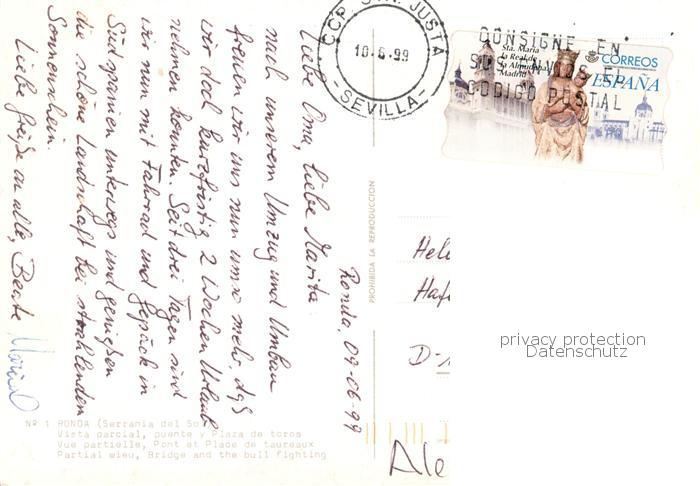 Ronda, 09-06-99
Liebe Oma, liebe Marita.
nach unserem Umzug und Umbau
freuen wir uns nun umso mehr, daß
wir doch kurzfristig 2 Wochen Urlaub
nehmen konnten. Seit drei Tagen sind
wir nun mit Fahrrad und Gepäck in
Südspanien unterwegs und genießen
die schöne Landschaft bei strahlenden
Sonnenschein.
Liebe Grüße an alle, Beate
Nº 1 RONDA (Serrania del Sol)
Vista parcial, puente y Plaza de toros
Vue partielle, Pont et Place de taureaux
Partial wieu, Bridge and the bull fighting
PROHIBIDA LA REPRODUCCION
CCP STA. JUSTA
10-6-99
-SEVILLA-
CONSIGNE EN
SUS ENVIOS EL
CODIGO POSTAL
Sta. María
la Real de
la Almudena
Madrid
CORREOS
ESPAÑA
Hel
Haf
D-
Ale
privacy protection
Datenschutz